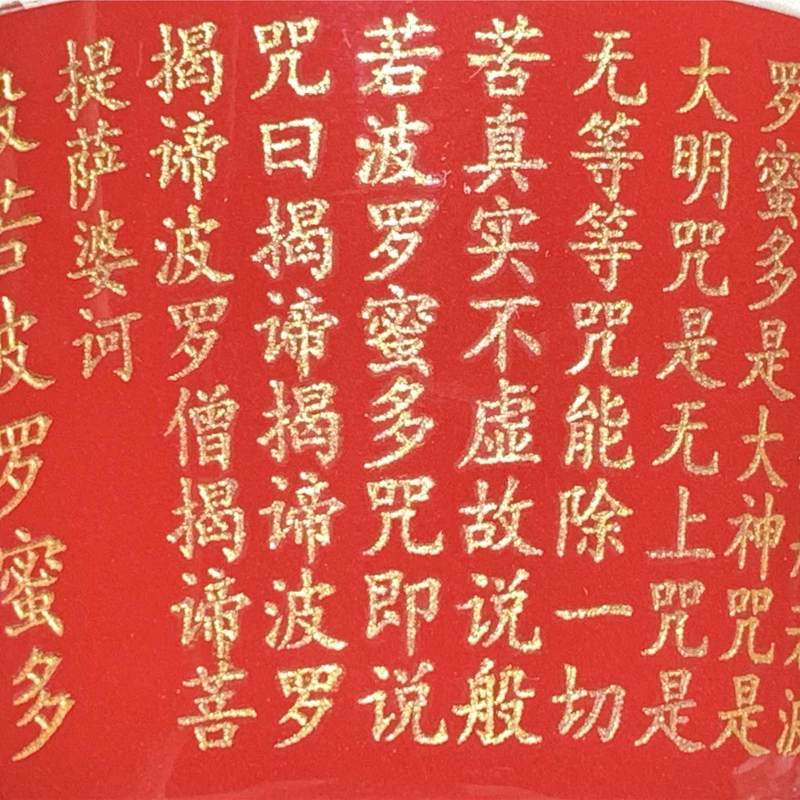 罗蜜多是大神咒是
大明咒是无上咒是
无等等咒能除一切
苦真实不虚故说般
若波罗蜜多咒即说
咒曰揭谛揭谛波罗
揭谛波罗僧揭谛菩
提萨婆诃
般若波罗蜜多